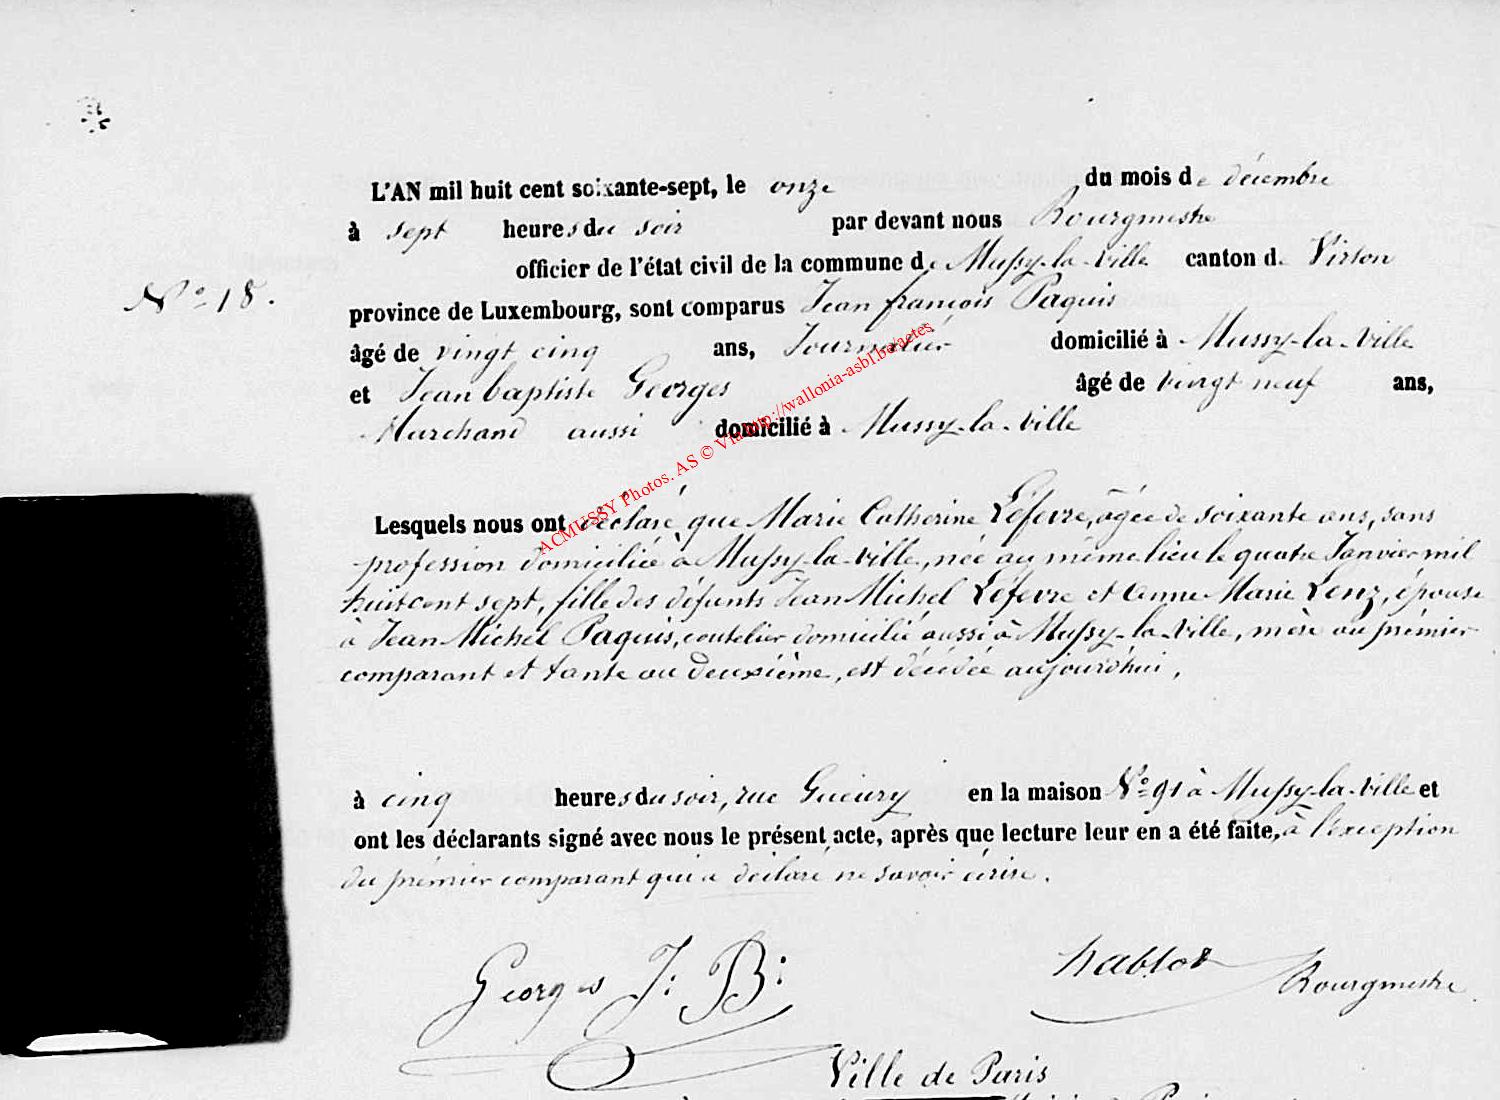 L'AN mil huit cent soixante-sept, le onze du mois de décembre
à sept heures du soir par devant nous Bourgmestre
officier de l'état civil de la commune de Mussy-la-Ville canton de Virton
N° 18.
province de Luxembourg, sont comparus Jean françois Paquis
âgé de vingt cinq ans, Journalier domicilié à Mussy-la-Ville
et Jean baptiste Georges âgé de vingt neuf ans,
Marchand aussi domicilié à Mussy-la-Ville
ACMUSSY Photos. AS © Via http://wallonia-asbl.be/actes
Lesquels nous ont déclaré que Marie Catherine Léfevre, âgée de soixante ans, sans
profession domiciliée à Mussy-la-Ville, née au même lieu le quatre Janvier mil
huit cent sept, fille des défunts Jean Michel Léfevre et Anne Marie Lenz, épouse
à Jean Michel Paquis, coutelier domicilié aussi à Mussy-la-Ville, mère au prémier
comparant et tante au deuxième, est décédée aujourd'hui,
à cinq heures du soir, rue Gueury en la maison N° 91 à Mussy-la-Ville et
ont les déclarants signé avec nous le présent acte, après que lecture leur en a été faite, à l'exception
du prémier comparant qui a déclaré ne savoir écrire.
Georges J: B: Bourgmestre
Ville de Paris